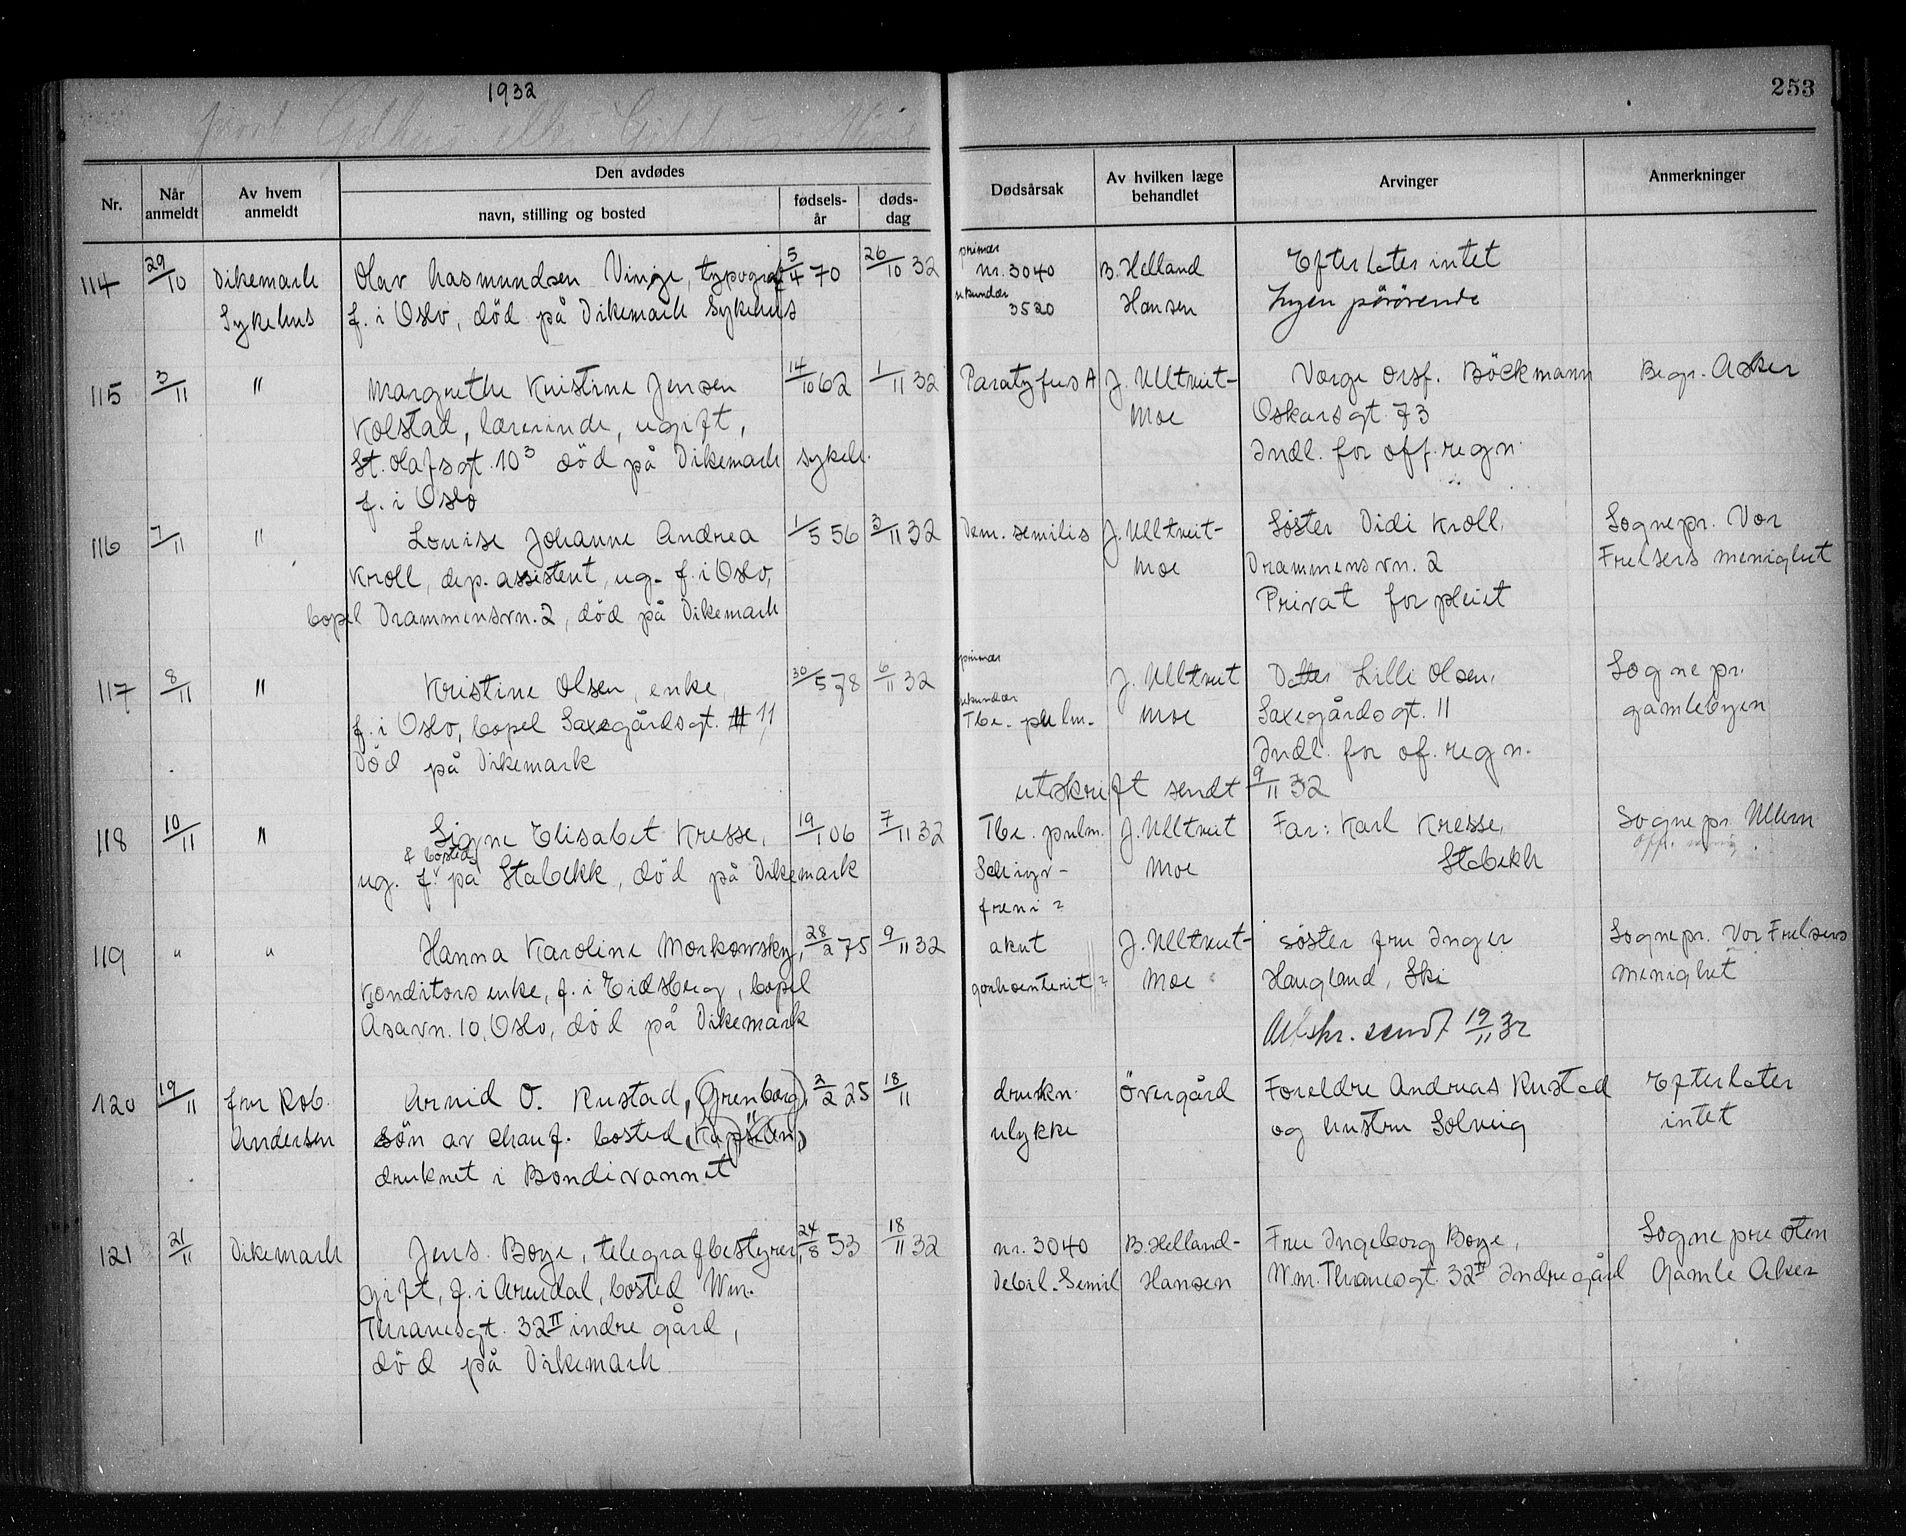 1932
253
Nr. Når anmeldt Av hvem anmeldt Den avdødes navn, stilling og bosted fødselsår dødsdag Dødsårsak Av hvilken læge behandlet Arvinger Anmerkninger
114 29/10 Dikemark Olav Rasmundsen Vinje, typograf 5/4 70 26/10 32 primær nr. 3040 B. Helland Efterlater intet
Sykehus f. i Oslo, död på Dikemark Sykehus sekundær 3520 Hansen Ingen pörörende
115 3/11 " Margrethe Kristine Jensen 14/10 62 1/11 32 Paratyfus A J. Ulltveit- Verge Orsf. Böckmann Begr. Asker
Kolstad, lærerinde, ugift, Moe Oskarsgt. 73
St. Olafsgt. 10³ död på Dikemark sykeh. Indl. for off. regn.
f. i Oslo
116 7/11 " Louise Johanne Andrea 1/5 56 3/11 32 Dem. semilis J. Ulltveit- Söster Didi Kroll, Sognepr. Vor
Kroll, dep. assistent, ug. f. i Oslo, Moe Drammensvn. 2 Frelsers menighet
bopel Drammensvn. 2, död på Dikemark Privat forpleiet
117 8/11 " Kristine Olsen, enke, 30/5 78 6/11 32 primær J. Ulltveit Datter Lilli Olsen, Sognepr.
f. i Oslo, bopel Saxegårdsgt. 11 sekundær Tbc. pulm. Moe Saxegårdsgt. 11 gamlebyen
Död på Dikemark Indl. for of. regn.
utskrift sendt 9/11 32
118 10/11 " Signe Elisabet Kresse, 19/1 06 7/11 32 Tbc. pulm. J. Ulltveit Far: Karl Kresse, Sognepr. Ullern
& bosted
ug. f. på Stabekk, död på Dikemark Schizo- Moe Stabekk off.
freni
119 " " Hanna Karoline Morkowsky, 28/2 75 9/11 32 akut J. Ulltveit- söster fru Inger Sognepr. Vor Frelsers
Konditors enke, f. i Eidsberg, bopel Moe Haugland, Ski menighet
Åsavn. 10, Oslo, död på Dikemark Utskr. sendt 19/11 32
120 19/11 fru Rob. Arnid O. Rustad, (Grenborg) 2/2 25 18/11 drukn. Övergård Foreldre Andreas Rustad Efterlater
Andersen sön av chauf. bosted ulykke og hustru Solveig intet
druknet i Bondivannet
121 21/11 Dikemark Jens Boye, telegrafbestyrer 24/8 53 18/11 32 nr. 3040 B. Helland- Fru Ingeborg Boye, Sognepresten
gift, f. i Arendal, bosted Wm. Debil. Semil Hansen Wm. Thranesgt. 32 II Indregård Gamle Aker
Thranesgt. 32 II indre gård,
död på Dikemark